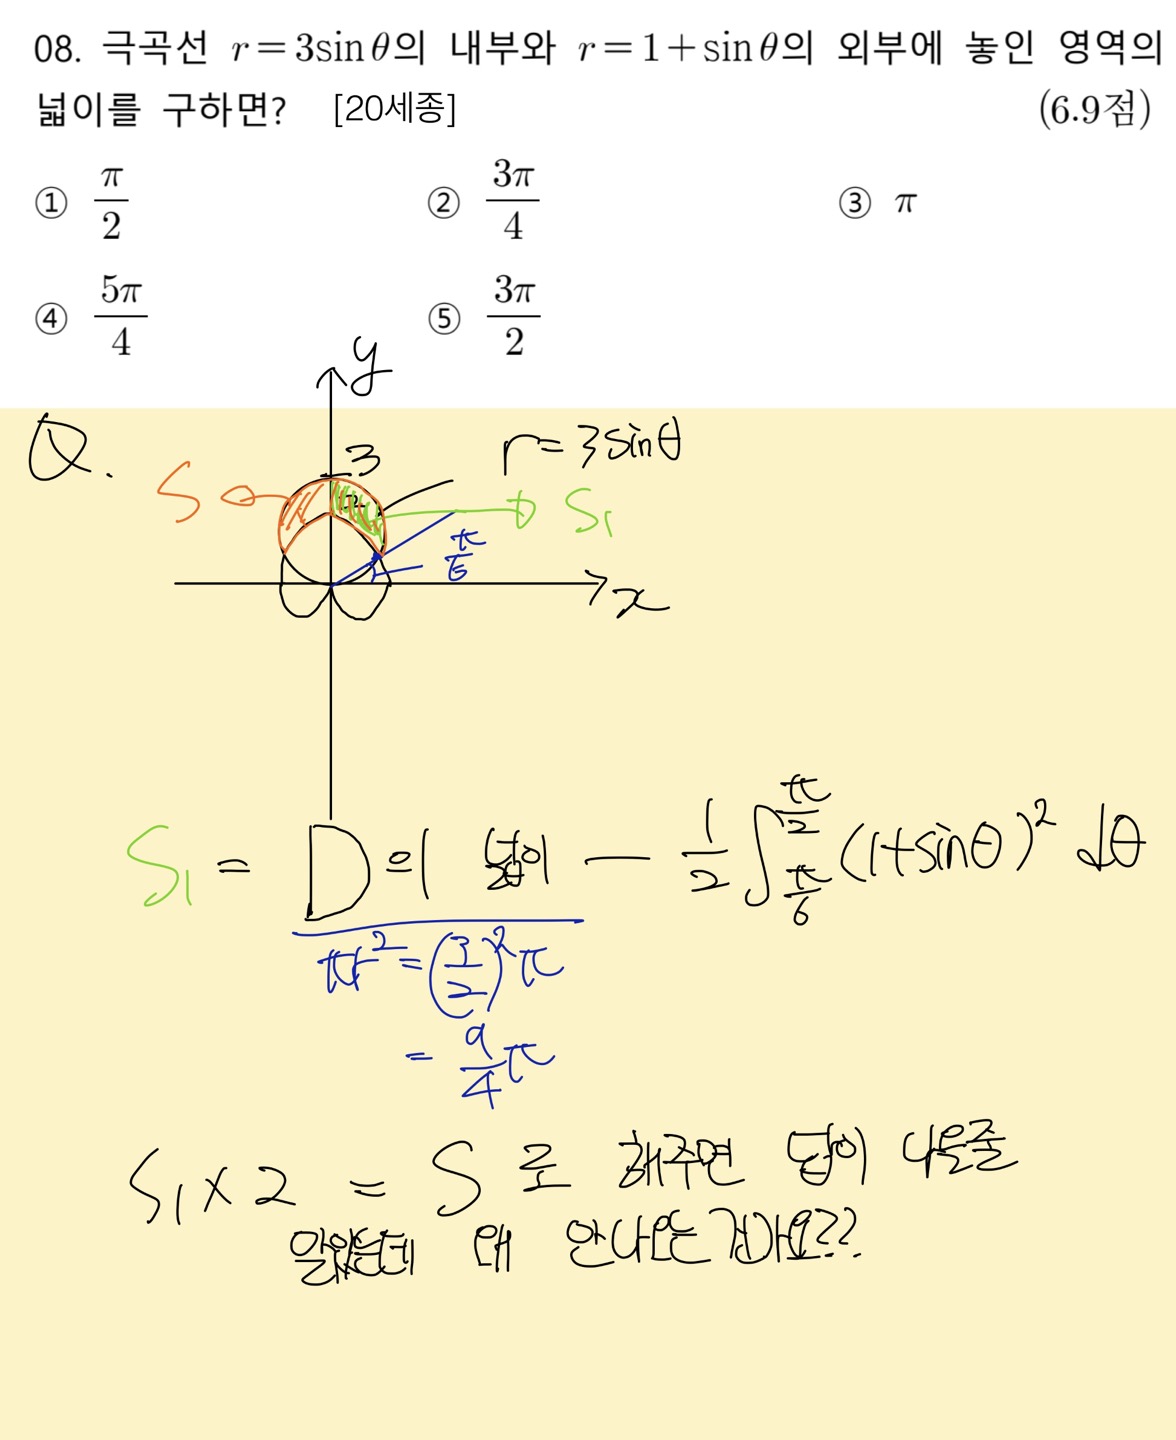 08. 극곡선 r=3sinθ의 내부와 r=1+sinθ의 외부에 놓인 영역의
넓이를 구하면? [20세종] (6.9점)
① π/2 ② 3π/4 ③ π
④ 5π/4 ⑤ 3π/2
y
Q.
3
r=3sinθ
S
S₁
π/6
x
S₁ = D의 넓이 — 1/2 ∫_{π/6}^{π/2} (1+sinθ)² dθ
πr² = (3/2)²π
= 9/4 π
S₁×2 = S로 해주면 답이 나올줄
알았는데 왜 안나오는건가요??